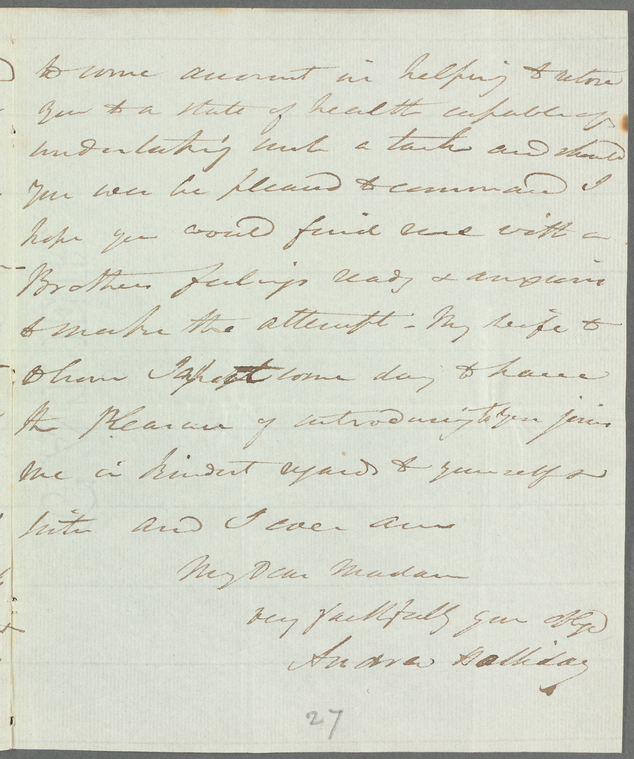 to some account in helping to restore
you to a state of health capable of
undertaking such a task and should
you ever be pleased to command I
hope you would find me with a
Brothers feelings ready & anxious
to make the attempt - My wife to
whom I expect some day to have
the Pleasure of introducing to you joins
me in kindest regards to yourself &
sister and I ever am
My Dear Madam
very faithfully your Obgd
Andrew Halliday
27